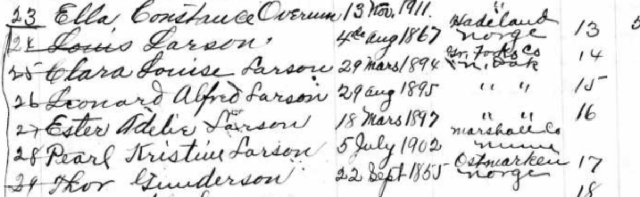 23 Ella Constance Overum 13 Nov. 1911. "
24 Louis Larson. 4de Aug 1867 Hadeland Norge 13
25 Clara Louise Larson 29 Mars 1894 Gr. Forks Co N. Dak 14
26 Leonard Alfred Larson 29 Aug 1895 " " 15
27 Ester Adelie Larson 18 Mars 1897 " " 16
28 Pearl Kristine Larson 5 July 1902 Marshall Co Minn
29 Thor Gunderson 22 Sept 1855 Ostmarken Norge 17
18